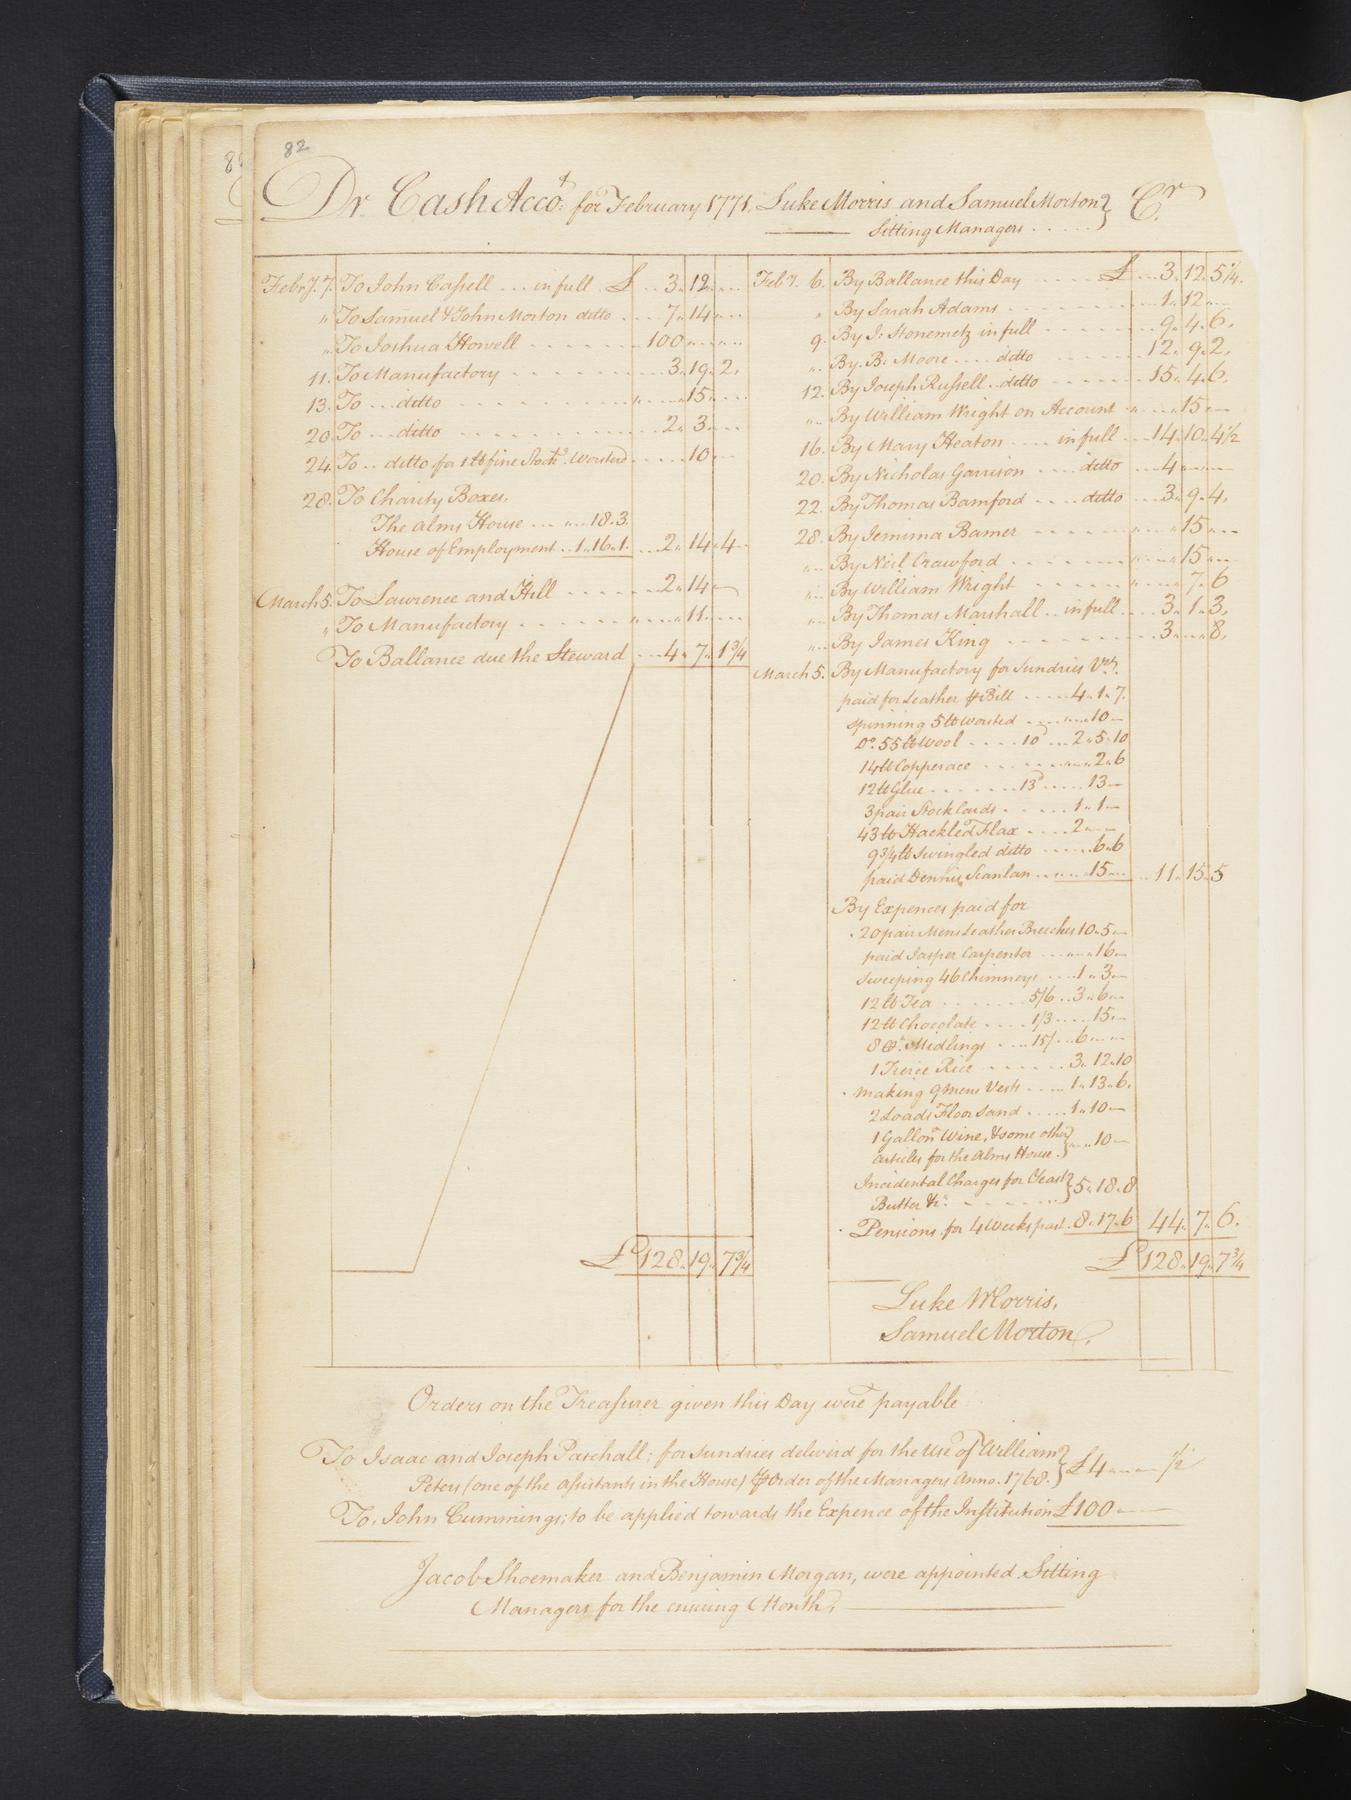 82
Dr. Cash Acco.t for February 1771. Luke Morris and Samuel Morton } Cr
Sitting Managers
Febry. 7. To John Cassell ... in full £ 3. 12. ..
" To Samuel & John Morton ditto 7. 14 ..
" To Joshua Howell 100 .. ..
11. To Manufactory 3. 19. 2.
13. To ... ditto " 15 ..
20. To ... ditto 2. 3. ..
24. To .. ditto for 1 lb fine Stock.g Worsted 10 ..
28. To Charity Boxes.
The Alms House ... " 18. 3.
House of Employment .. 1. 16. 1. 2. 14. 4
March 5. To Lawrence and Hill 2. 14 —
" To Manufactory " 11 ..
To Ballance due the Steward 4. 7. 1 3/4
£ 128. 19. 7 3/4
Feb.y 6. By Ballance this Day £ 3. 12. 5 1/4.
" By Sarah Adams 1. 12 ..
9. By J: Stonemetz in full 9. 4. 6.
" By B: Moore .... ditto 12. 9. 2.
12. By Joseph Russell .. ditto 15. 4. 6.
" By William Wright on Account " 15 —
16. By Mary Heaton .... in full 14. 10. 4 1/2
20. By Nicholas Garrison .... ditto 4 .. ..
22. By Thomas Bamford .... ditto 3. 9. 4.
28. By Jemima Barner " 15 ..
" By Neil Crawford " 15 ..
" By William Wright " 7. 6
" By Thomas Marshall .. in full 3. 1. 3.
" By James King 3. " 8.
March 5. By Manufactory for Sundries Vizt.
paid for Leather ⅌ Bill 4. 1. 7.
Spinning 5 lb Worsted " 10 —
Do. 55 lb Wool 10d 2. 5. 10
14 lb Copperace " 2. 6
12 lb Glue 13d 13 —
3 pair Stock Cards 1. 1 —
43 lb Hackled Flax 2 ..
9 3/4 lb Swingled ditto 6. 6
paid Dennis Scanlan " 15 .. 11. 15. 5
By Expences paid for
20 pair Mens Leather Breeches 10. 5 —
paid Jasper Carpenter " 16 —
Sweeping 46 Chimneys 1. 3 —
12 lb Tea 5/6 .. 3. 6 —
12 lb Chocolate 1/3 15 —
8 Ct. Midlings 15/ .. 6 ..
1 Tierce Rice 3. 12. 10
making 9 Mens Vests 1. 13. 6.
2 Loads Floor Sand 1. 10 —
1 Gallon Wine, & some other }
articles for the Alms House. } " 10 —
Incidental Charges for Yeast }
Butter &c. } 5. 18. 8
Pensions for 4 Weeks past. 8. 17. 6 44. 7. 6.
£ 128. 19. 7 3/4
Luke Morris,
Samuel Morton.
Orders on the Treasurer given this Day were payable
To Isaac and Joseph Paschall; for Sundries deliverd for the Use of William }
Peters (one of the assistants in the House) ⅌ Order of the Managers Anno. 1768. } £4 .. — 1/2
To, John Cummings; to be applied towards the Expence of the Institution £100 —
Jacob Shoemaker and Benjamin Morgan, were appointed Sitting
Managers for the ensuing Month,